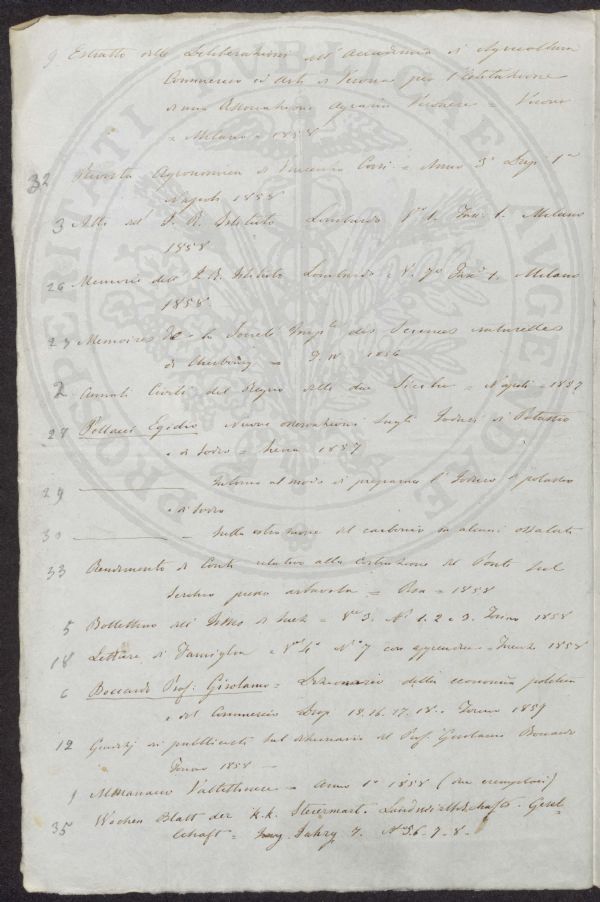 9 Estratto delle Deliberazioni dell' Accademia di Agricoltura
Commercio ed Arti di Verona per l'Istituzione
di una Associazione Agraria Veronese = Verona
= Milano = 1858
32 Rivista Agronomica di Vincenzo Corsi = Anno 3° Disp. 1ª
Napoli 1858
3 Atti dell' I. R. Istituto Lombardo Vol. 1. Fasc. 1. Milano
1858
26 Memorie dell' I. R. Istituto Lombardo = V. 7° Fasc. 1. Milano
1858
27 Memoires de la Societé Imp.le des Sciences naturelles
di Cherbourg = T. IV. 1856
2 Annali Civili del Regno delle due Sicilie = Napoli = 1857
28 Pollacci Egidio Nuove osservazioni sugli Joduri di Potassio
e di Sodio = Siena 1857
29 ——— Intorno al modo di preparare l'Joduro di potassio
e di Sodio
30 ——— Sulla estrazione del carbonio da alcuni ossalati
33 Rendimento di Conti relativo alla Costruzione del Ponte sul
Serchio presso = Pisa = 1858
5 Bollettino dell' Istmo di Suez = Vol. 3. N° 1. 2 e 3. Torino 1858
18 Letture di Famiglia = Vol. 4° N° 7 con appendice = Trieste 1858
6 Boccardo Prof. Girolamo = Dizionario della economia politica
e del Commercio Disp. 15. 16. 17. 18. Torino 1859
12 Giudizj pubblicati sul dizionario del Prof. Gerolamo Boccardo
Torino 1858 —
1 Almanacco Valtellinese = Anno 1° 1858 (due esemplari)
35 Wochen Blatt der k. k. Steiermärk. Landwirthschafts-Gesel-
lschaft = Jahrg 7. N° 5. 6. 7. 8.
PROSPERITATI PUBLICAE AUGENDAE